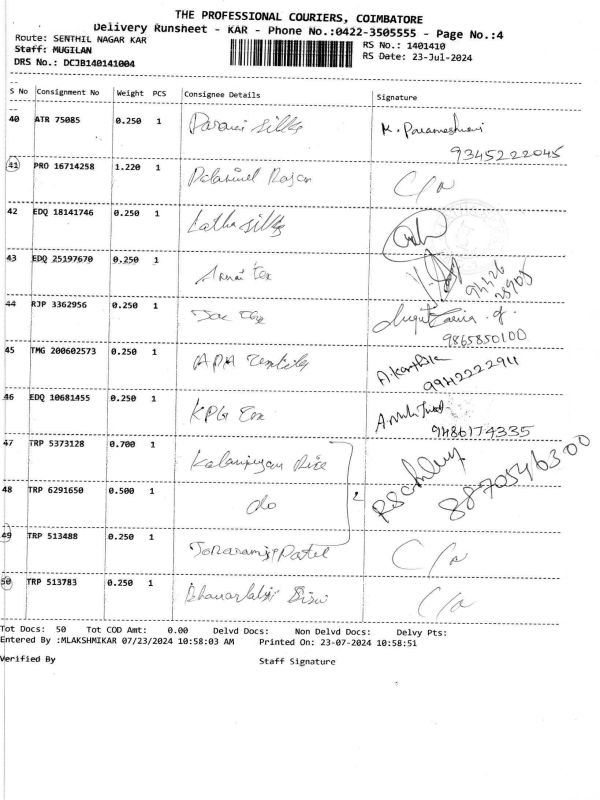 THE PROFESSIONAL COURIERS, COIMBATORE
Delivery Runsheet - KAR - Phone No.:0422-3505555 - Page No.:4
Route: SENTHIL NAGAR KAR RS No.: 1401410
Staff: MUGILAN RS Date: 23-Jul-2024
DRS No.: DCJB140141004
S No Consignment No Weight PCS Consignee Details Signature
40 ATR 75085 0.250 1 Parani Silks K. Parameshwari
9345222045
41 PRO 16714258 1.220 1 Palanivel Rajan C/n
42 EDQ 18141746 0.250 1 Latha Silks
43 EDQ 25197670 0.250 1 Annai Tex
94426
25905
44 RJP 3362956 0.250 1 Tex
9865850100
45 TMG 200602573 0.250 1 APM Textiles A.Karthik
9942222294
46 EDQ 10681455 0.250 1 KPG Tex
9486174335
47 TRP 5373128 0.700 1 Kalanjiyam Rice
8870546300
48 TRP 6291650 0.500 1 do 2
49 TRP 513488 0.250 1 Patel C/n
50 TRP 513783 0.250 1 C/n
Tot Docs: 50 Tot COD Amt: 0.00 Delvd Docs: Non Delvd Docs: Delvy Pts:
Entered By :MLAKSHMIKAR 07/23/2024 10:58:03 AM Printed On: 23-07-2024 10:58:51
Verified By Staff Signature